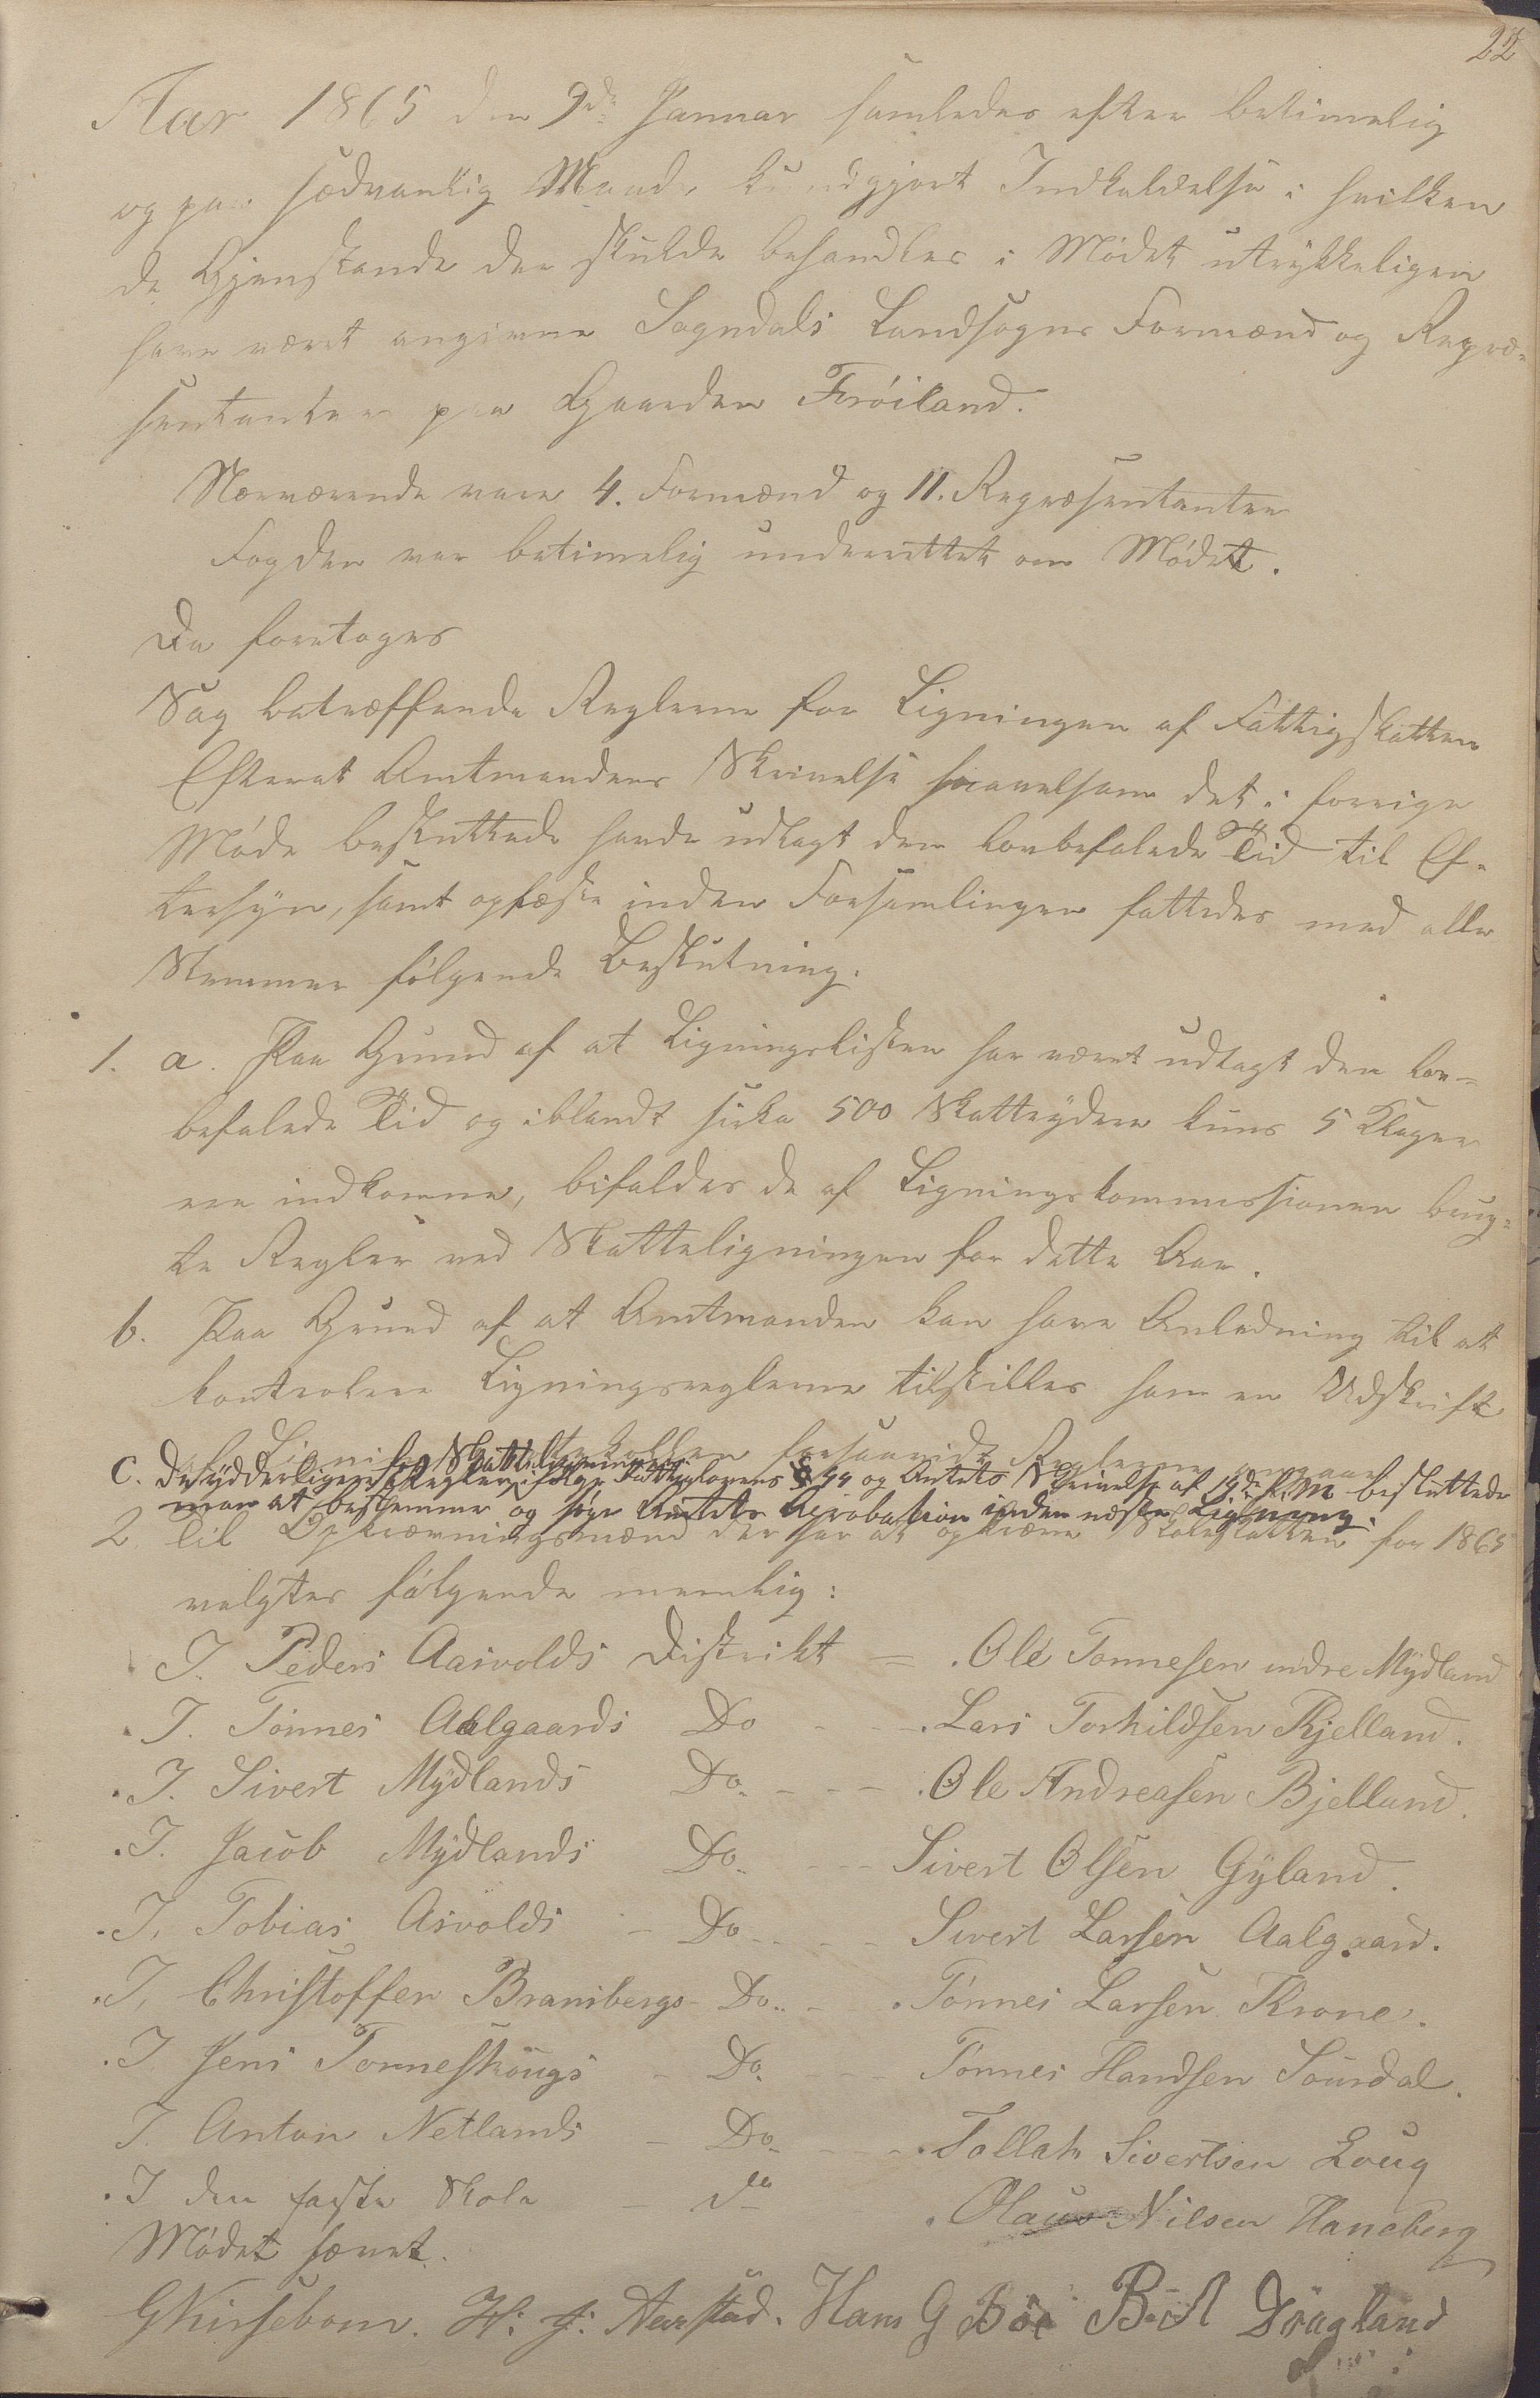 22
Aar 1865 den 9de Januar samledes efter betimelig
og paa sædvanlig Maade kundgjort Indkaldelse i hvilken
de Gjenstande der skulde behandles i Mødet utrykkeligen
have været angivne Sogndals Landsogns Formænd og Repræ-
sentanter paa Gaarden Frøiland.
Nærværende vare 4. Formænd og 11. Repræsentanter
Fogden var betimelig underrettet om Mødet.
Da foretoges
Sag betræffende Reglerne for Ligningen af Fattigskatten
Efterat Amtmandens Skrivelse saavelsom det i forrige
Møde besluttede havde udlagt den lovbefalede Tid til Ef-
tersyn, samt oplæste inden Forsamlingen fattedes med alle
Stemmer følgende Beslutning.
1. a. Paa Grund af at Ligningslisten har været udlagt den lov-
befalede Tid og iblandt sirka 500 Skatteydere kuns 5 Klager
ere indkomne, bifaldes de af Ligningskommissionen brug-
te Regler ved Skatteligningen for dette Aar.
b. Paa Grund af at Amtmanden kan have Anledning til at
kontrolere Ligningsreglerne tilstilles ham en Udskrift
af forsaavidt Reglerne angaar
c. De ydderligere Regler ifølge Fattiglovens § 44 og Amtets Skrivelse af 19de f. M. besluttede
man at bestemme og søge Amtets Aprobation inden næste Ligning.
2. Til Opkrævningsmænd der har at opkræve Skoleskatten for 1865
valgtes følgende nemlig:
I. Peders Aasvolds Distrikt = . Ole Tonnesen indre Mydland
I. Tönnes Aalgaards Do - - . Lars Torkildsen Kjelland.
I. Sivert Mydlands Do. - - - . Ole Andreasen Bjelland.
I. Jacob Mydlands Do. - - - Sivert Olsen Gyland.
I. Tobias Asvolds - Do - - - Sivert Larsen Aalgaard.
I. Christoffer Bransbergs Do. - . Tönnes Larsen Krone.
I Jens Tonneskougs - Do. - - - Tönnes Handsen Sourdal.
I. Anton Netlands - Do. - - - . Tollak Sivertsen Loug
I den faste Skole - do . Olaus Nilsen Haneberg
Mødet hævet.
G Kirsebom. H: J: Aarstad. Hans G Böe B Drageland